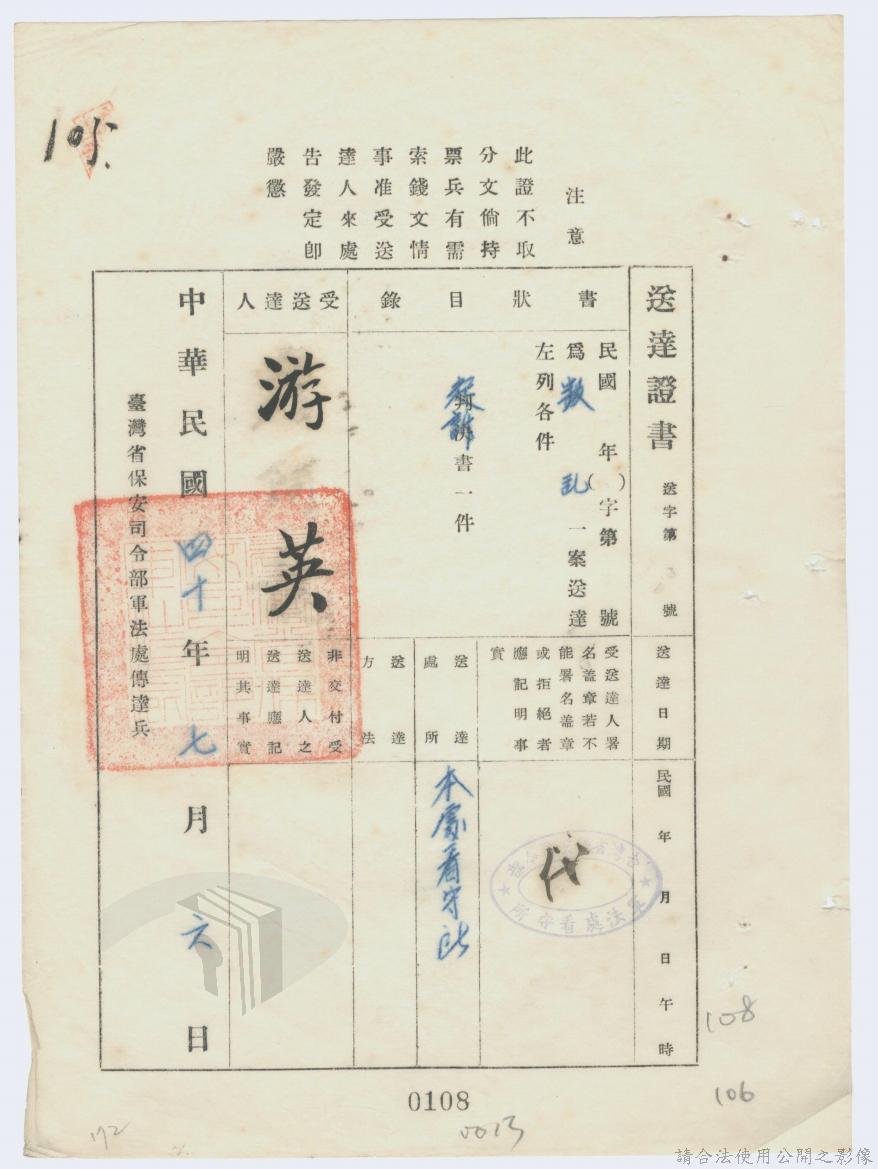 105.
注意
此證不取
分文倘持
票兵有需
索錢文情
事准受送
達人來處
告發定即
嚴懲
送達證書
送字第 號
送達日期
民國 年 月 日 午 時
書狀目錄
民國 年( )字第 號
為 叛乱 一案送達
左列各件
起訴書一件
受送達人署
名蓋章若不
能署名蓋章
或拒絕者
應記明事
實
代
軍法處看守所
送達
處所
本處看守所
送達
方法
受送達人
游 英
非交付受
送達人之
送達應記
明其事實
中華民國四十年七月六日
臺灣省保安司令部軍法處傳達兵
0108
108
106
0013
172
請合法使用公開之影像